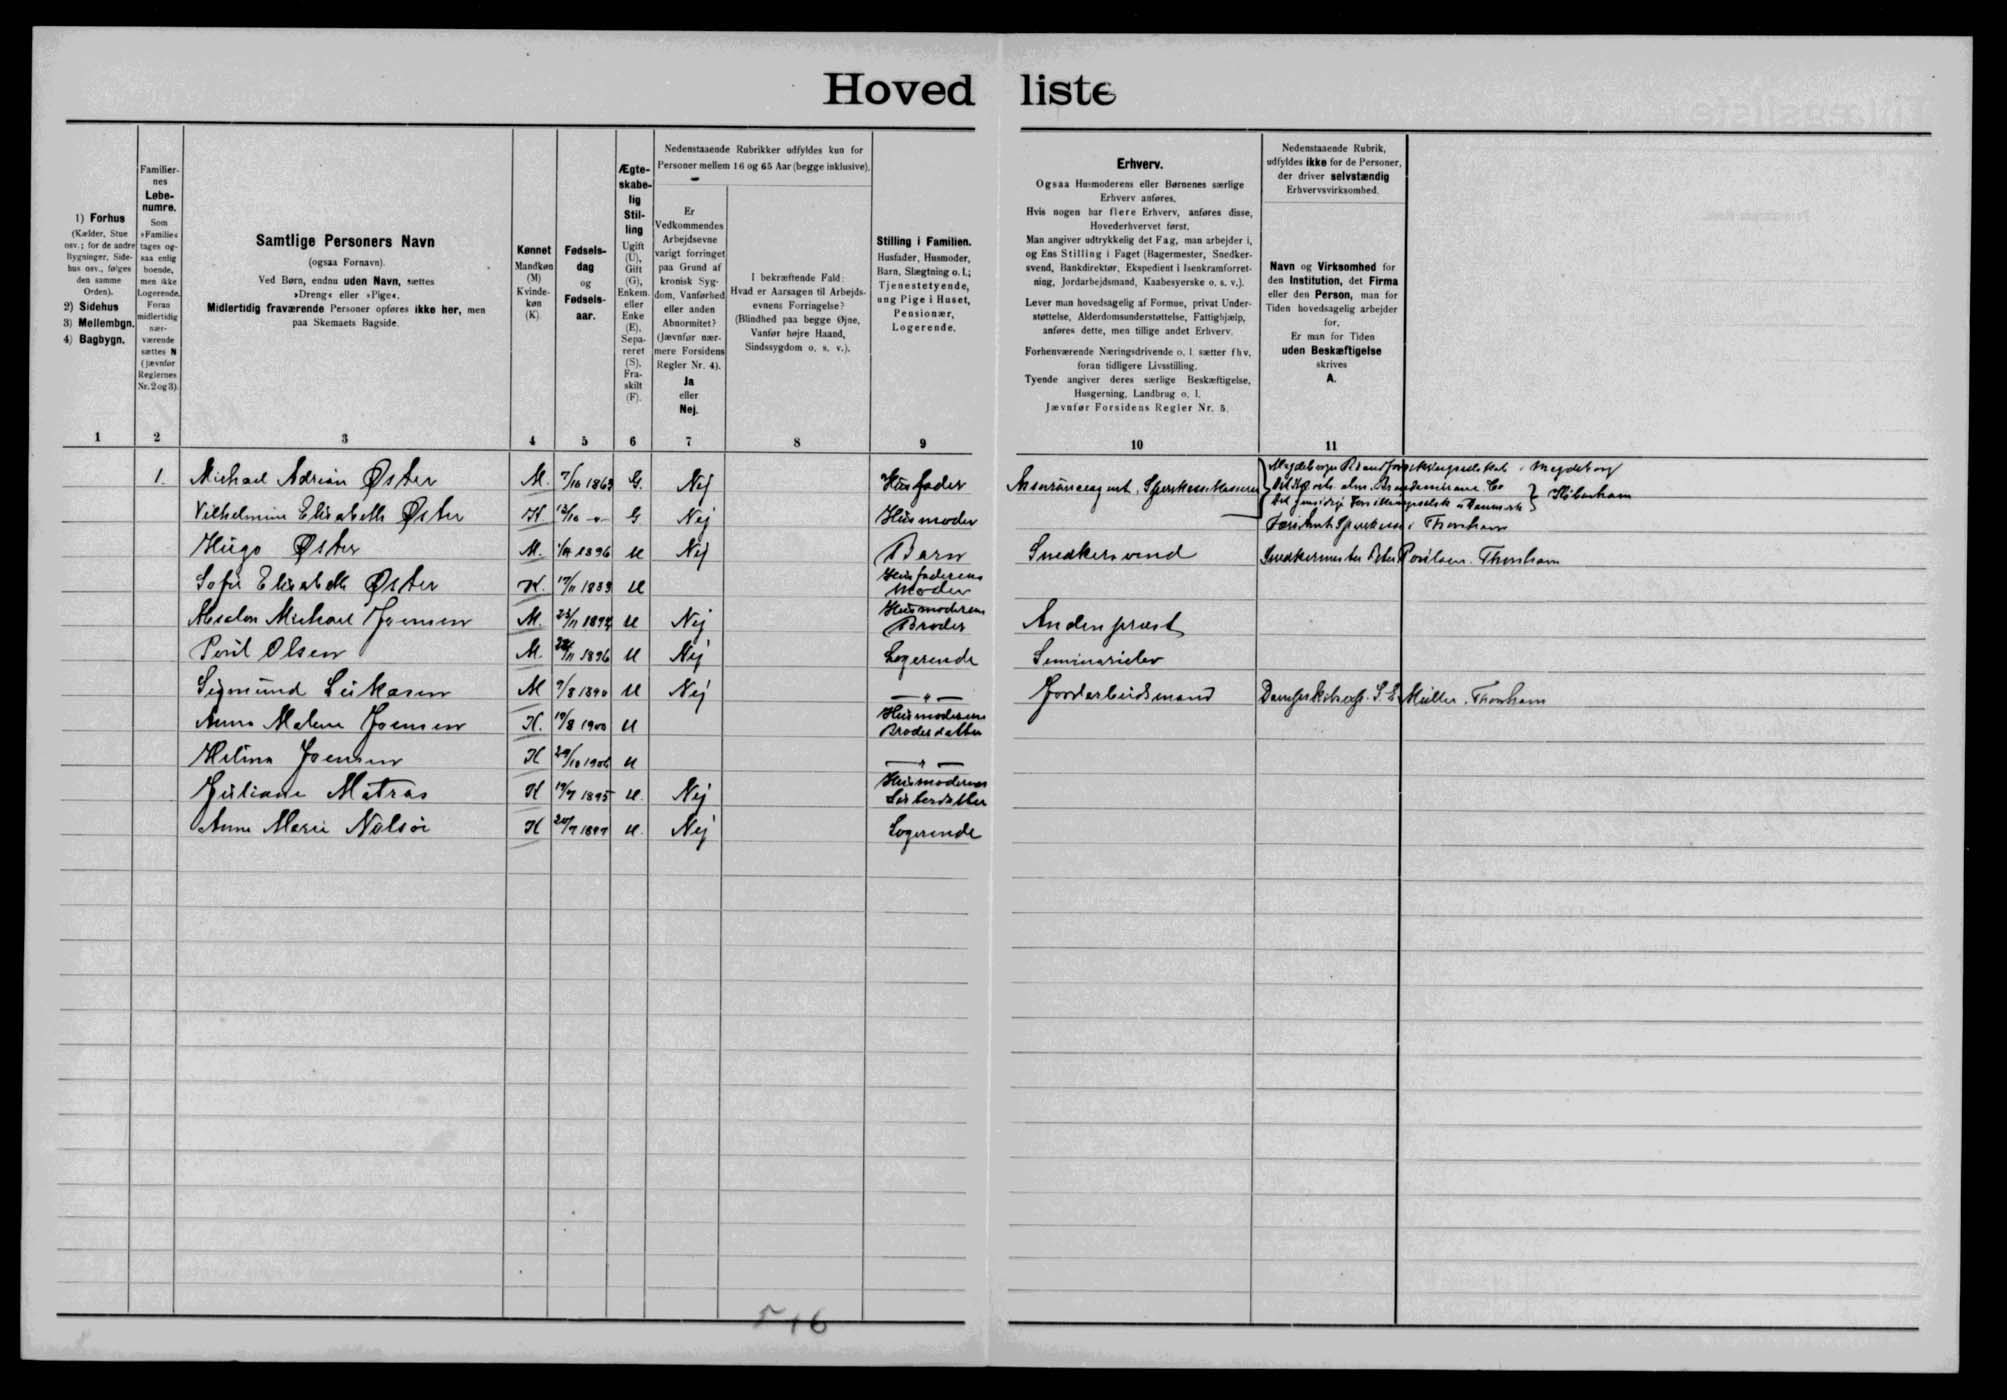 Hovedliste
1) Forhus
(Kælder, Stue
osv.; for de andre
Bygninger, Side-
hus osv., følges
den samme
Orden).
2) Sidehus
3) Mellembgn.
4) Bagbygn.
1
Familier-
nes
Løbe-
numre.
Som
»Familie«
tages og-
saa enlig
boende,
men ikke
Logerende.
Foran
midlertidig
nær-
værende
sættes N
(jævnfør
Reglernes
Nr. 2 og 3).
2
Samtlige Personers Navn
(ogsaa Fornavn).
Ved Børn, endnu uden Navn, sættes
»Dreng« eller »Pige«.
Midlertidig fraværende Personer opføres ikke her, men
paa Skemaets Bagside.
3
Kønnet
Mandkøn
(M)
Kvinde-
køn
(K)
4
Fødsels-
dag
og
Fødsels-
aar.
5
Ægte-
skabe-
lig
Stil-
ling
Ugift
(U),
Gift
(G),
Enkem.
eller
Enke
(E),
Sepa-
reret
(S),
Fra-
skilt
(F).
6
Nedenstaaende Rubrikker udfyldes kun for
Personer mellem 16 og 65 Aar (begge inklusive).
Er
Vedkommendes
Arbejdsevne
varigt forringet
paa Grund af
kronisk Syg-
dom, Vanførhed
eller anden
Abnormitet?
(Jævnfør nær-
mere Forsidens
Regler Nr. 4).
Ja
eller
Nej.
7
I bekræftende Fald:
Hvad er Aarsagen til Arbejds-
evnens Forringelse?
(Blindhed paa begge Øjne,
Vanfør højre Haand,
Sindssygdom o. s. v.).
8
Stilling i Familien.
Husfader, Husmoder,
Barn, Slægtning o. l.;
Tjenestetyende,
ung Pige i Huset,
Pensionær,
Logerende.
9
Erhverv.
Ogsaa Husmoderens eller Børnenes særlige
Erhverv anføres.
Hvis nogen har flere Erhverv, anføres disse,
Hovederhvervet først.
Man angiver udtrykkelig det Fag, man arbejder i,
og Ens Stilling i Faget (Bagermester, Snedker-
svend, Bankdirektør, Ekspedient i Isenkramforret-
ning, Jordarbejdsmand, Kaabesyerske o. s. v.).
Lever man hovedsagelig af Formue, privat Under-
støttelse, Alderdomsunderstøttelse, Fattighjælp,
anføres dette, men tillige andet Erhverv.
Forhenværende Næringsdrivende o. l. sætter fhv.
foran tidligere Livsstilling.
Tyende angiver deres særlige Beskæftigelse,
Husgerning, Landbrug o. l.
Jævnfør Forsidens Regler Nr. 5.
10
Nedenstaaende Rubrik,
udfyldes ikke for de Personer,
der driver selvstændig
Erhvervsvirksomhed.
Navn og Virksomhed for
den Institution, det Firma
eller den Person, man for
Tiden hovedsagelig arbejder
for.
Er man for Tiden
uden Beskæftigelse
skrives
A.
11
1. Michael Adrian Øster M. 7/10 1863 G. Nej Husfader Assuranceagent, Sparekasse Kasserer Magdeborger Brandforsikringsselskab i Magdeborg
København
Vilhelmine Elisabeth Øster K 12/10 -"- G Nej Husmoder
Færø Amts Sparekasse i Thorshavn
Hugo Øster M. 1896 U Nej Barn Snedkersvend Snedkermester Peter Poulsen. Thorshavn
Sofie Elisabeth Øster K. 17/11 1839 U Husfaderens Moder
Absalon Michael Joensen M. U Nej Husmoderens Broder Andenpræst
Poul Olsen M. 1896 U Nej Logerende Seminarielev
Sigmund Lukasen M 9/8 1890 U Nej -"- Jordarbeidsmand S. E. Müller. Thorshavn
Anna Malene Joensen K. 19/8 1900 U Husmoderens Broderdatter
Helina Joensen K 29/10 1906 U -"-
Juliane Matras K 19/7 1895 U. Nej Husmoderens Søsterdatter
Anna Marie Nolsøe K 20/7 1897 U. Nej Logerende
5 + 6